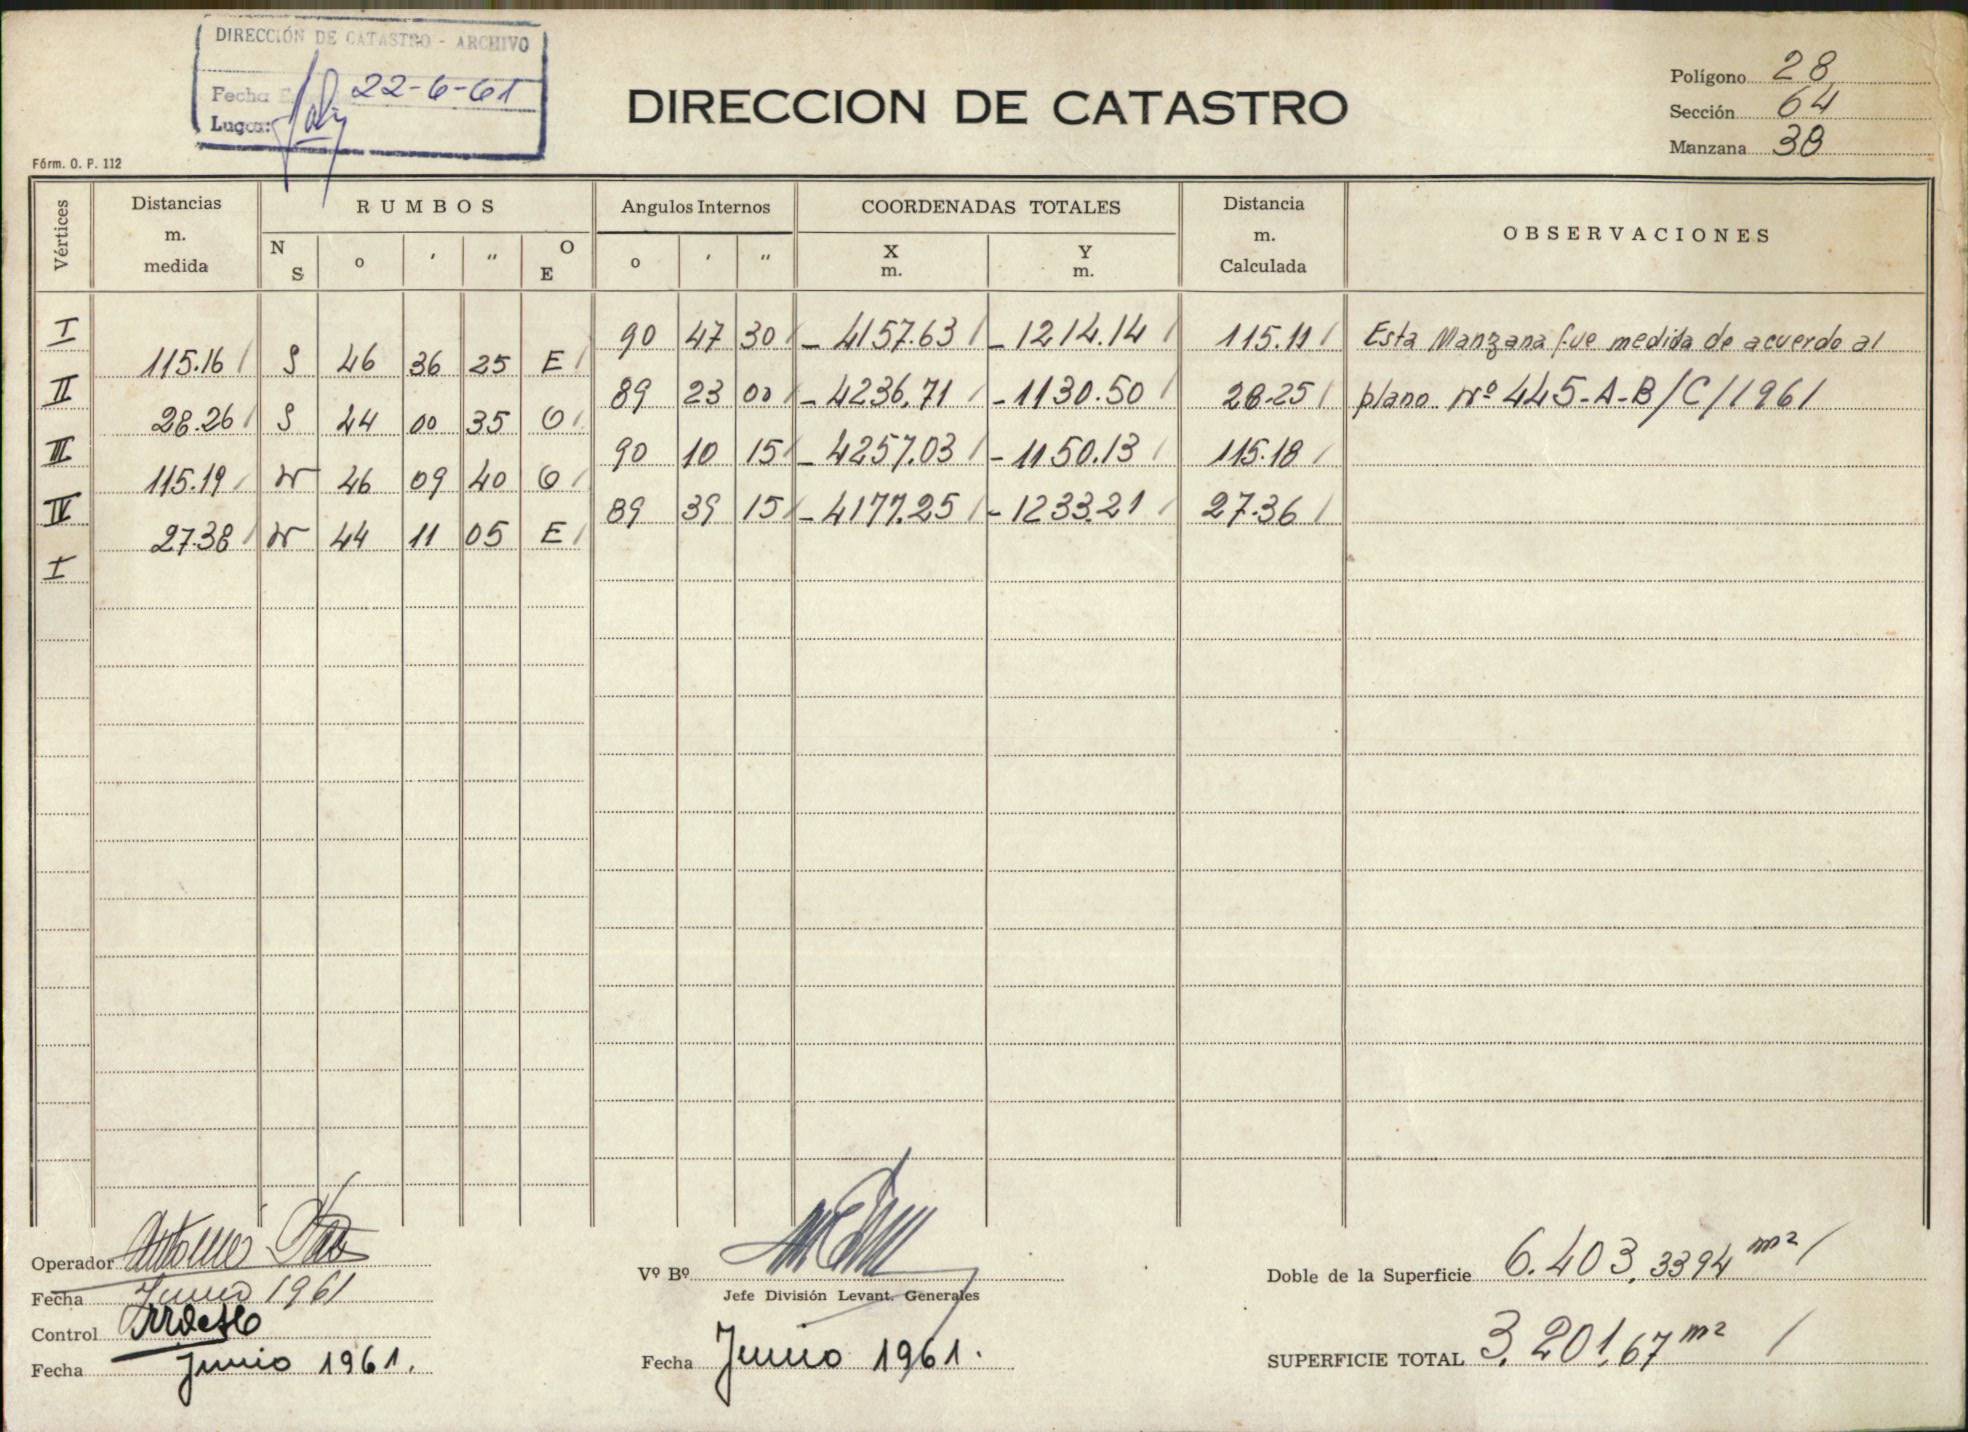 DIRECCIÓN DE CATASTRO - ARCHIVO
Fecha 22-6-61
Lugar:
Fórm. O. P. 112
DIRECCION DE CATASTRO
Polígono 28
Sección 64
Manzana 38
Vértices
Distancias m. medida
RUMBOS
N S o ' " O E
Angulos Internos
o ' "
COORDENADAS TOTALES
X m. Y m.
Distancia m. Calculada
OBSERVACIONES
I 90 47 30 - 4157.63 - 1214.14 115.11 Esta Manzana fue medida de acuerdo al
115.16 S 46 36 25 E
II 89 23 00 - 4236.71 - 1130.50 28.25 plano Nº 445-A-B/C/1961
28.26 S 44 00 35 O
III 90 10 15 - 4257.03 - 1150.13 115.18
115.19 N 46 09 40 O
IV 89 39 15 - 4177.25 - 1233.21 27.36
27.38 N 44 11 05 E
I
Operador Antonio
Fecha Junio 1961
Control
Fecha Junio 1961.
Vº Bº
Jefe División Levant. Generales
Fecha Junio 1961.
Doble de la Superficie 6.403,3394 m²
SUPERFICIE TOTAL 3.201,67 m²